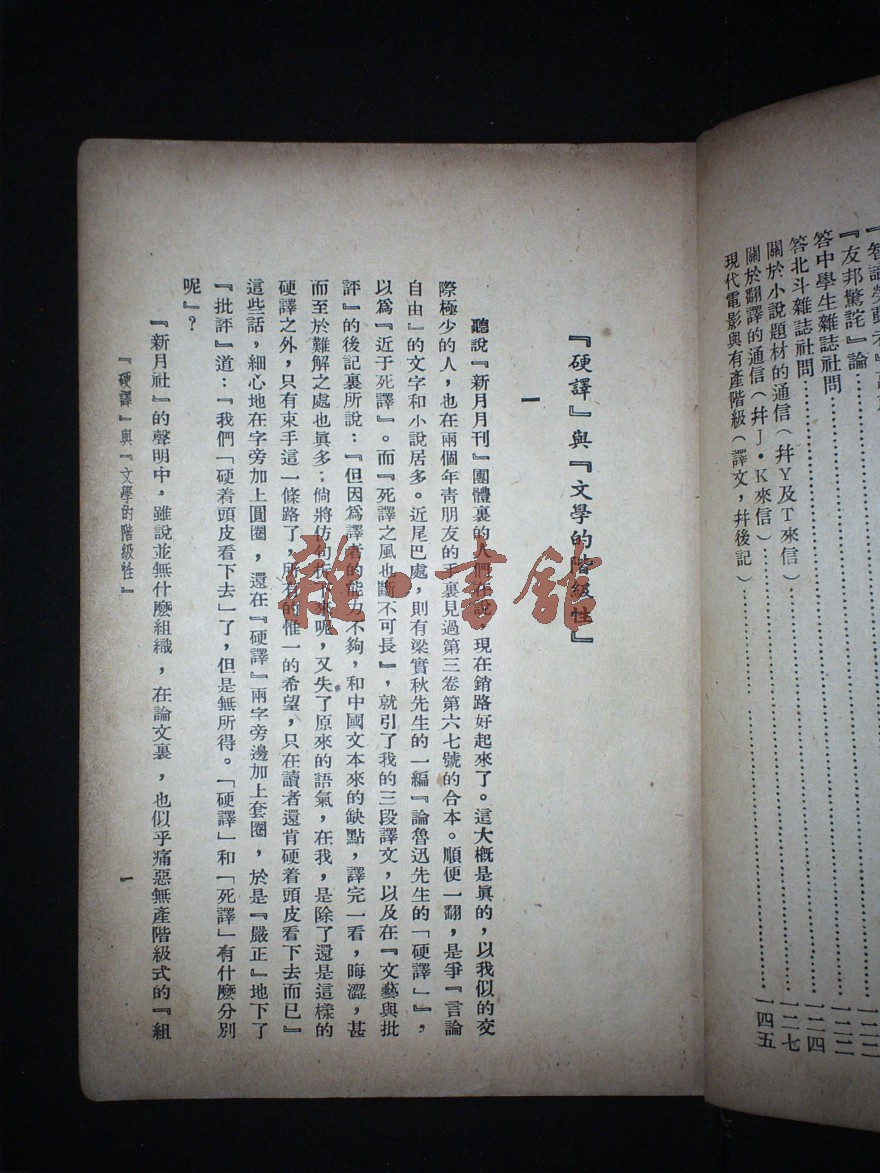 答中學生雜誌社問
答北斗雜誌社問
『友邦驚詫』論
一二二
一二四
關於小說題材的通信(幷Y及T來信)
一二七
關於翻譯的通信(幷J·K來信)
現代電影與有產階級(譯文,幷後記)
一四五
『硬譯』與『文學的階級性』
一
聽說『新月月刊』團體裏的人們在說,現在銷路好起來了。這大槪是眞的,以我似的交
際極少的人,也在兩個年靑朋友的手裏見過第三卷第六七號的合本。順便一翻,是爭『言論
自由』的文字和小說居多。近尾巴處,則有梁實秋先生的一編『論魯迅先生的「硬譯」』,
以爲『近于死譯』。而『死譯之風也斷不可長』,就引了我的三段譯文,以及在『文藝與批
評』的後記裏所說:『但因爲譯者的能力不夠,和中國文本來的缺點,譯完一看,晦澀,甚
而至於難解之處也眞多;倘將仂句拆下來呢,又失了原來的語氣,在我,是除了還是這樣的
硬譯之外,只有束手這一條路了,所有的惟一的希望,只在讀者還肯硬着頭皮看下去而已』
這些話,細心地在字旁加上圓圈,還在『硬譯』兩字旁邊加上套圈,於是『嚴正』地下了
『批評』道:『我們「硬着頭皮看下去」了,但是無所得。「硬譯」和「死譯」有什麼分別
呢』?
『新月社』的聲明中,雖說並無什麼組織,在論文裏,也似乎痛惡無產階級式的『組
『硬譯』與『文學的階級性』
一
雜·書館